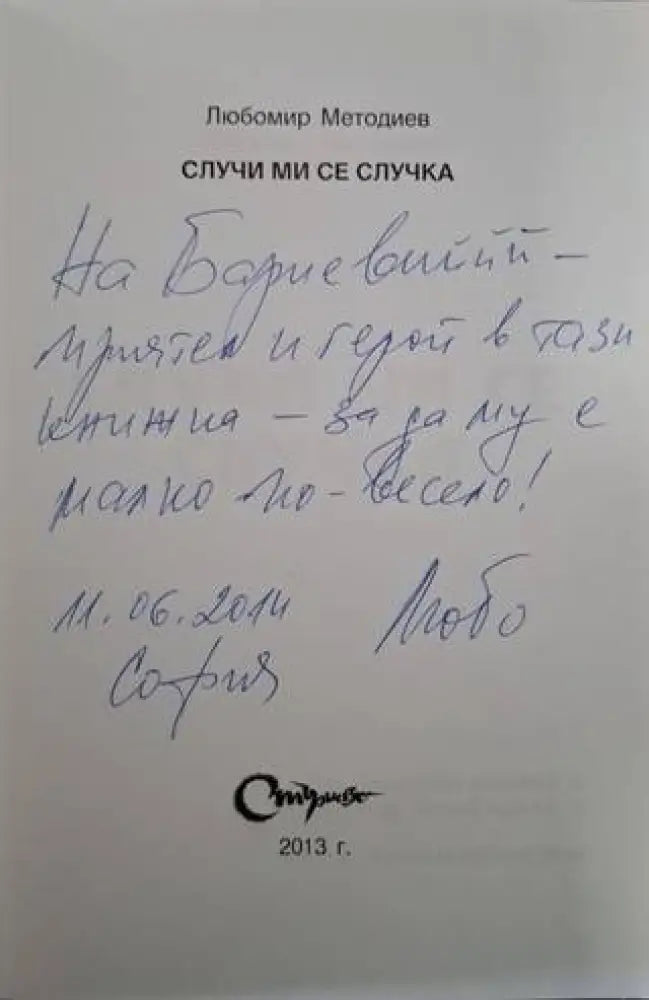 Любомир Методиев
СЛУЧИ МИ СЕ СЛУЧКА
На
приятел и герой в тази
книжка – за да му е
малко по-весело!
11.06.2014 Любо
София
2013 г.